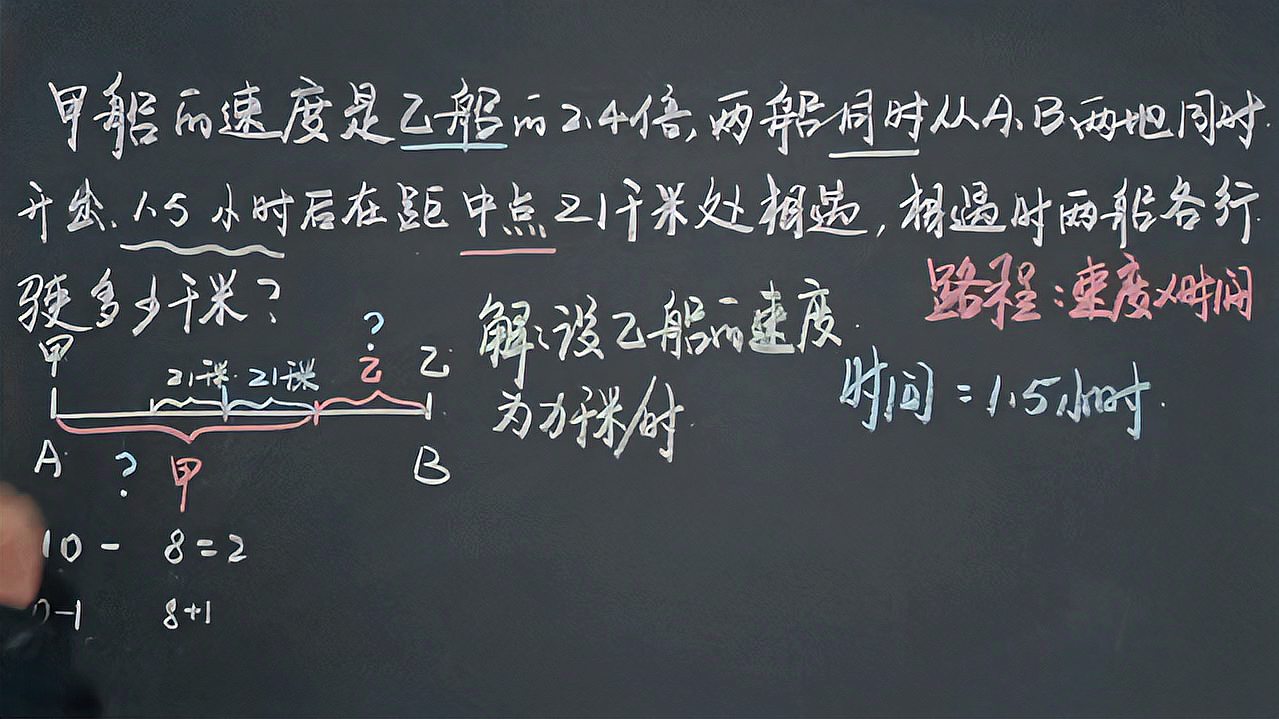 甲船的速度是乙船的2.4倍,两船同时从A、B两地同时
开出,1.5小时后在距中点21千米处相遇,相遇时两船各行
驶多少千米?
路程:速度×时间
解:设乙船的速度
为 千米/时
时间=1.5小时.
甲
?
乙
乙
21千米 21千米
A
?
甲
B
10- 8=2
-1 8+1